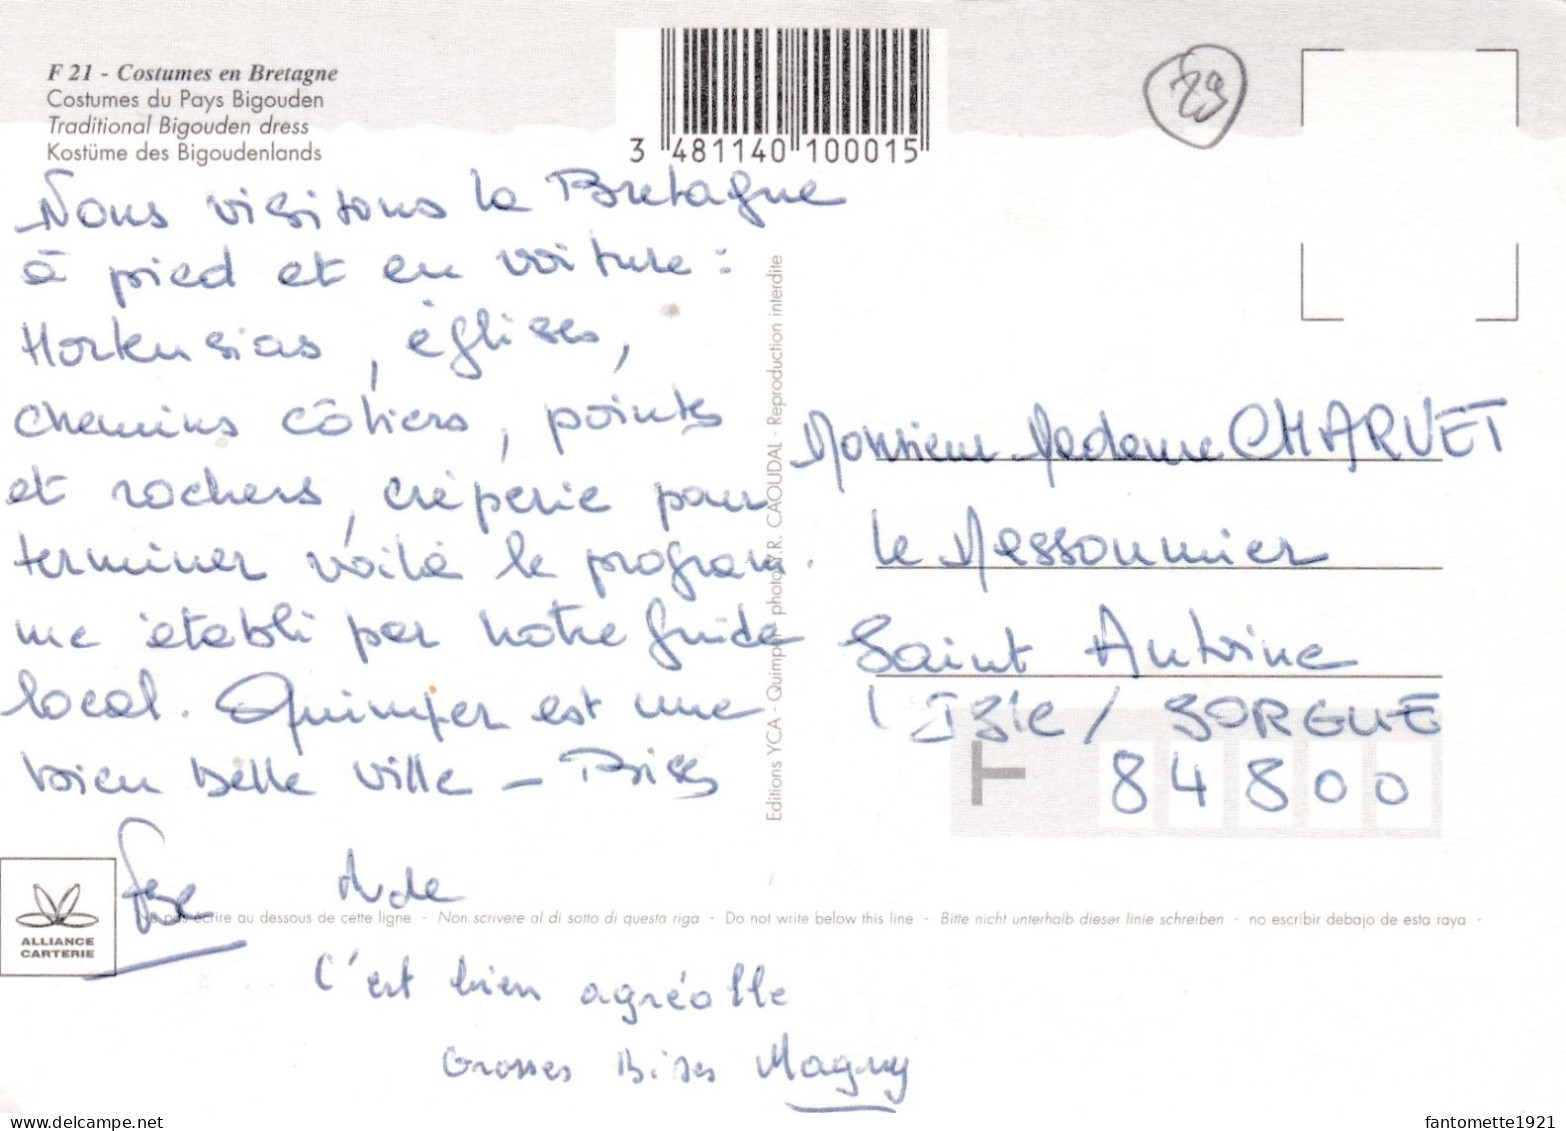 F 21 - Costumes en Bretagne
Costumes du Pays Bigouden
Traditional Bigouden dress
Kostüme des Bigoudenlands
3 481140 100015
29
Nous visitons la Bretagne
à pied et en voiture :
Hortensias, églises,
chemins côtiers, pointes
et rochers, crêperie pour
terminer voilà le program.
me établi par notre guide
local. Quimper est une
bien belle ville – Bises
Aude
C'est bien agréable
Grosses Bises Maguy
Editions YCA - Quimper - photo Y.R. CAOUDAL - Reproduction interdite
Monsieur Madame CHARVET
le Messounier
Saint Antoine
l'Isle / SORGUE
T 84800
ALLIANCE
CARTERIE
Ne pas écrire au dessous de cette ligne - Non scrivere al di sotto di questa riga - Do not write below this line - Bitte nicht unterhalb dieser linie schreiben - no escribir debajo de esta raya -
fantomette1921